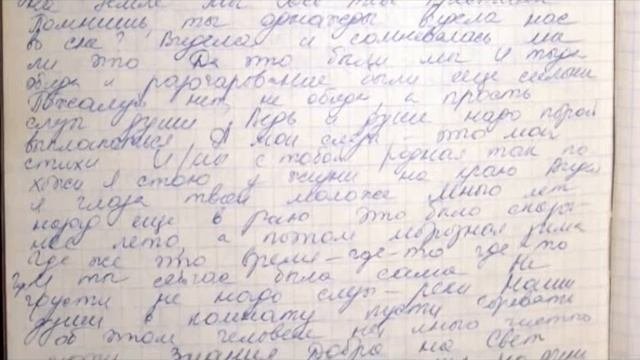 на земле мы все
Помнишь ты однажды видела нас
во сне? Видела и сомневалась мы
ли это Да это были мы и тогда
обида и разочарование были еще сильны
Пожалуй нет не обида, а просто
слезы души Ведь и душе надо порой
выплакаться А мои слезы – это мои
стихи И мы с тобой родная так по
хожи Я стою у жизни на краю
я глаза твои моложе много лет
назад еще в раю это было
нас лето, а потом морозная зима
Где же это время – где-то где-то
и ты сейчас была сама Не
грусти не надо слез – реки Наши
души в комнату пусти
об этом человек на много
Знания Добра на Свет